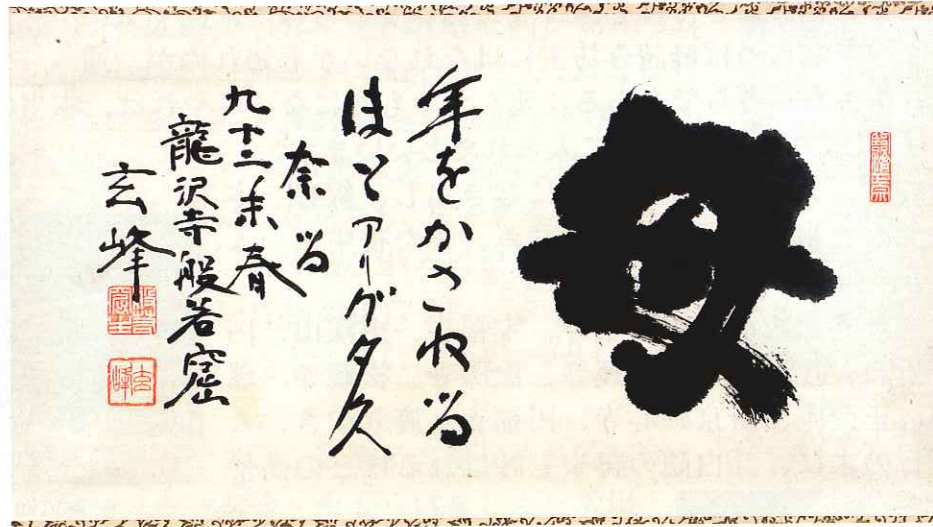 母
年をかさねる
ほとアリガタ久
奈る
九十二未春
龍沢寺般若窟
玄峰
玄峰